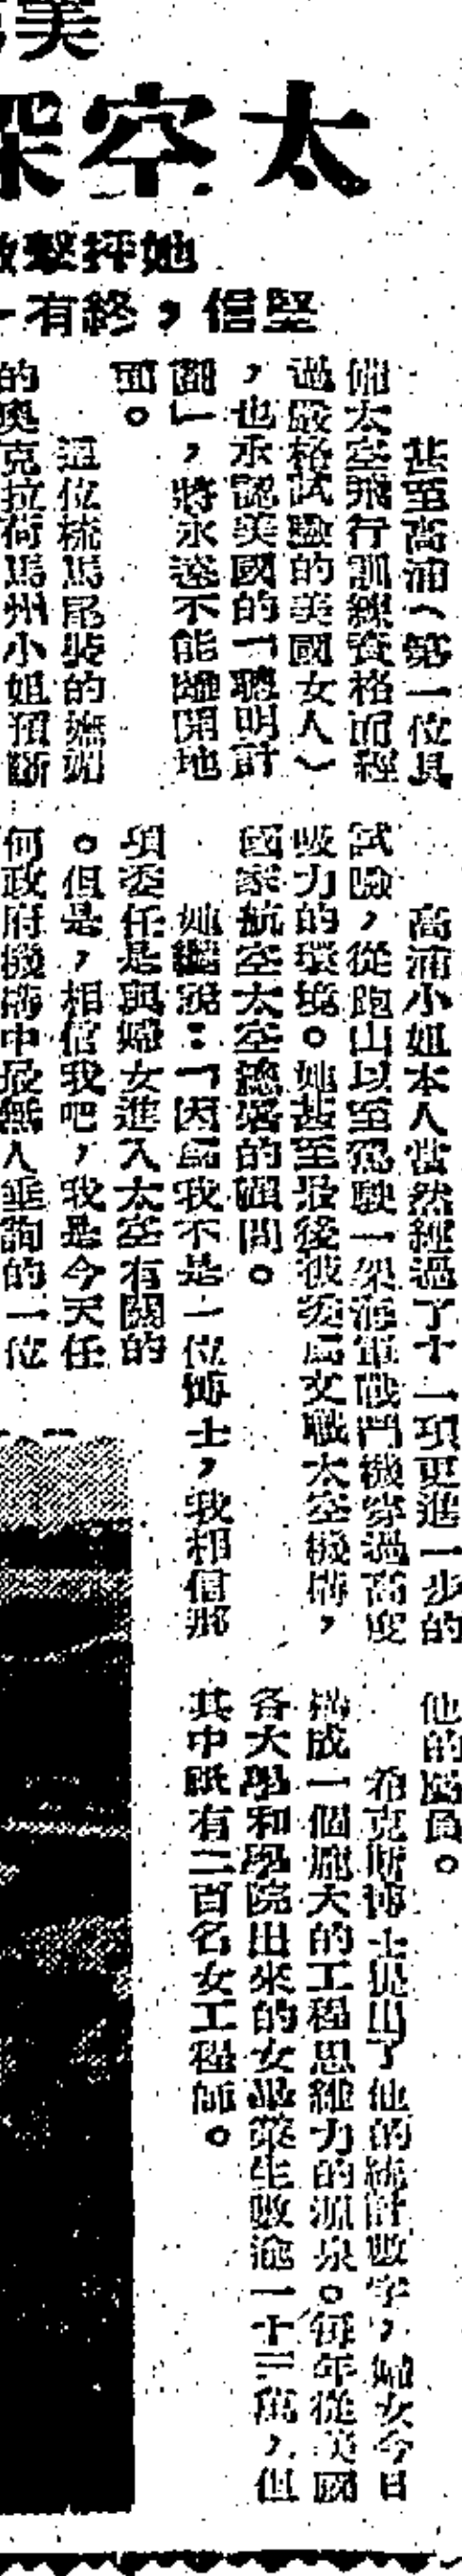 美
太空深
她抨擊
堅信，終有一
甚至高浦（第一位具
備太空飛行訓練資格而經
過嚴格試驗的美國女人）
，也承認美國的「聰明計
劃」，將永遠不能離開地
面。
這位梳馬尾裝的嫵媚
的奧克拉荷馬州小姐預斷
高浦小姐本人當然經過了十一項更進一步的
試驗，從跑山以至駕駛一架海軍戰鬥機穿過高度
吸力的環境。她甚至最後被委為文職太空機構，
國家航空太空總署的顧問。
她繼說：「因為我不是一位博士，我相信那
項委任是與婦女進入太空有關的
。但是，相信我吧，我是今天任
何政府機構中最無人垂詢的一位
他的屬員。
希克斯博士提出了他的統計數字，婦女今日
構成一個龐大的工程思維力的源泉。每年從美國
各大學和學院出來的女畢業生數逾一十三萬，但
其中祇有二百名女工程師。